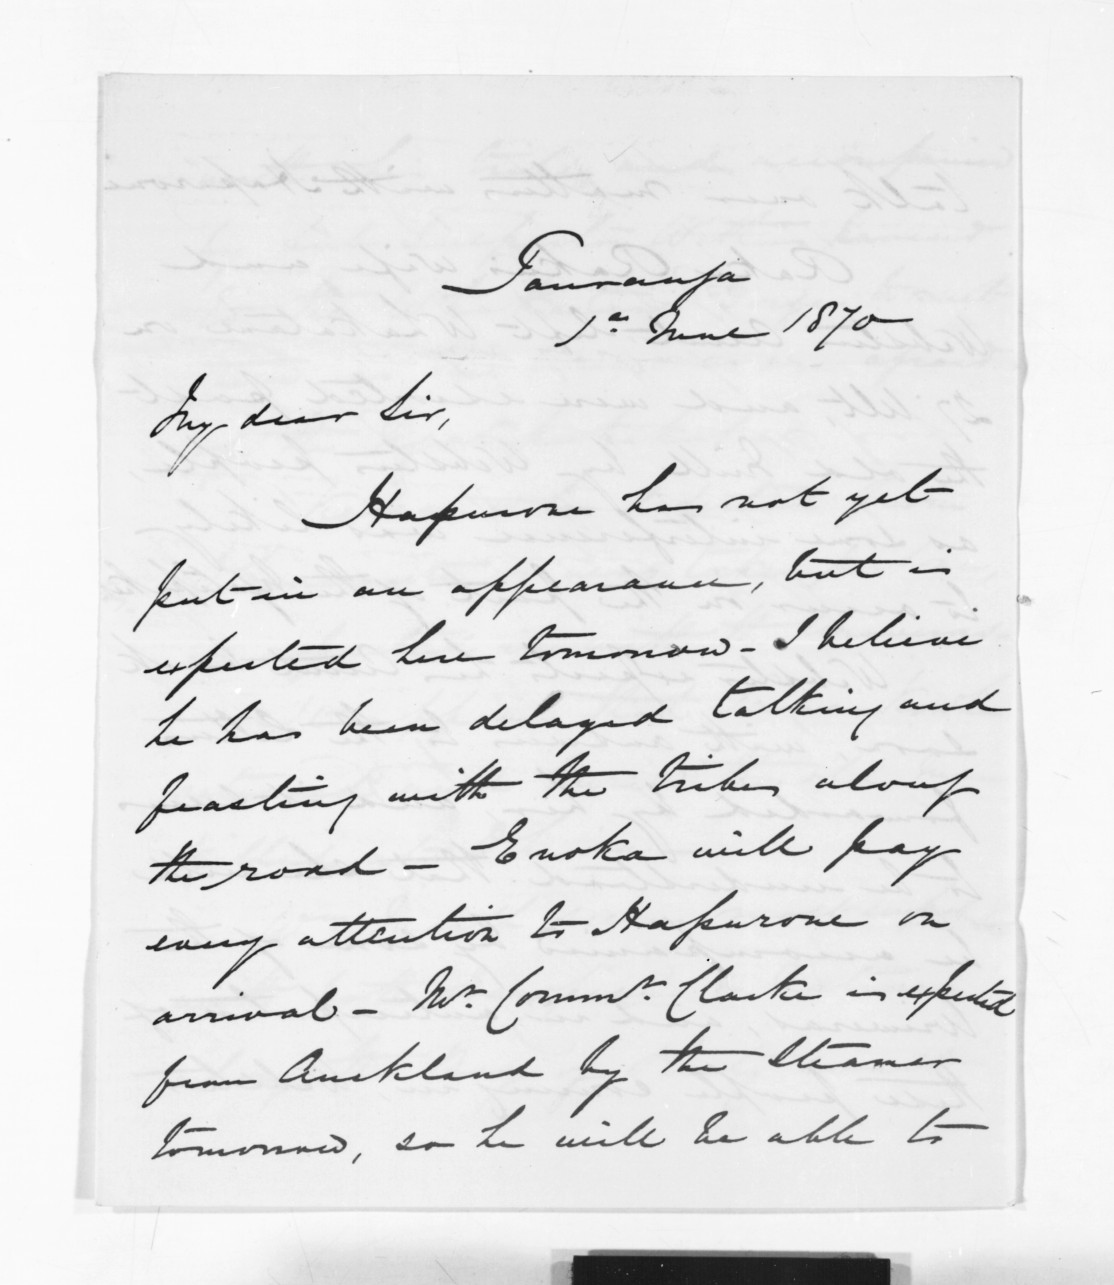 Tauranga
1st June 1870
My dear Sir,
Hapurone has not yet
put in an appearance, but is
expected here tomorrow - I believe
he has been delayed talking and
feasting with the tribes along
the road - Enoka will pay
every attention to Hapurone on
arrival - Mr. Commr. Clarke is expected
from Auckland by the Steamer
tomorrow, so he will be able to